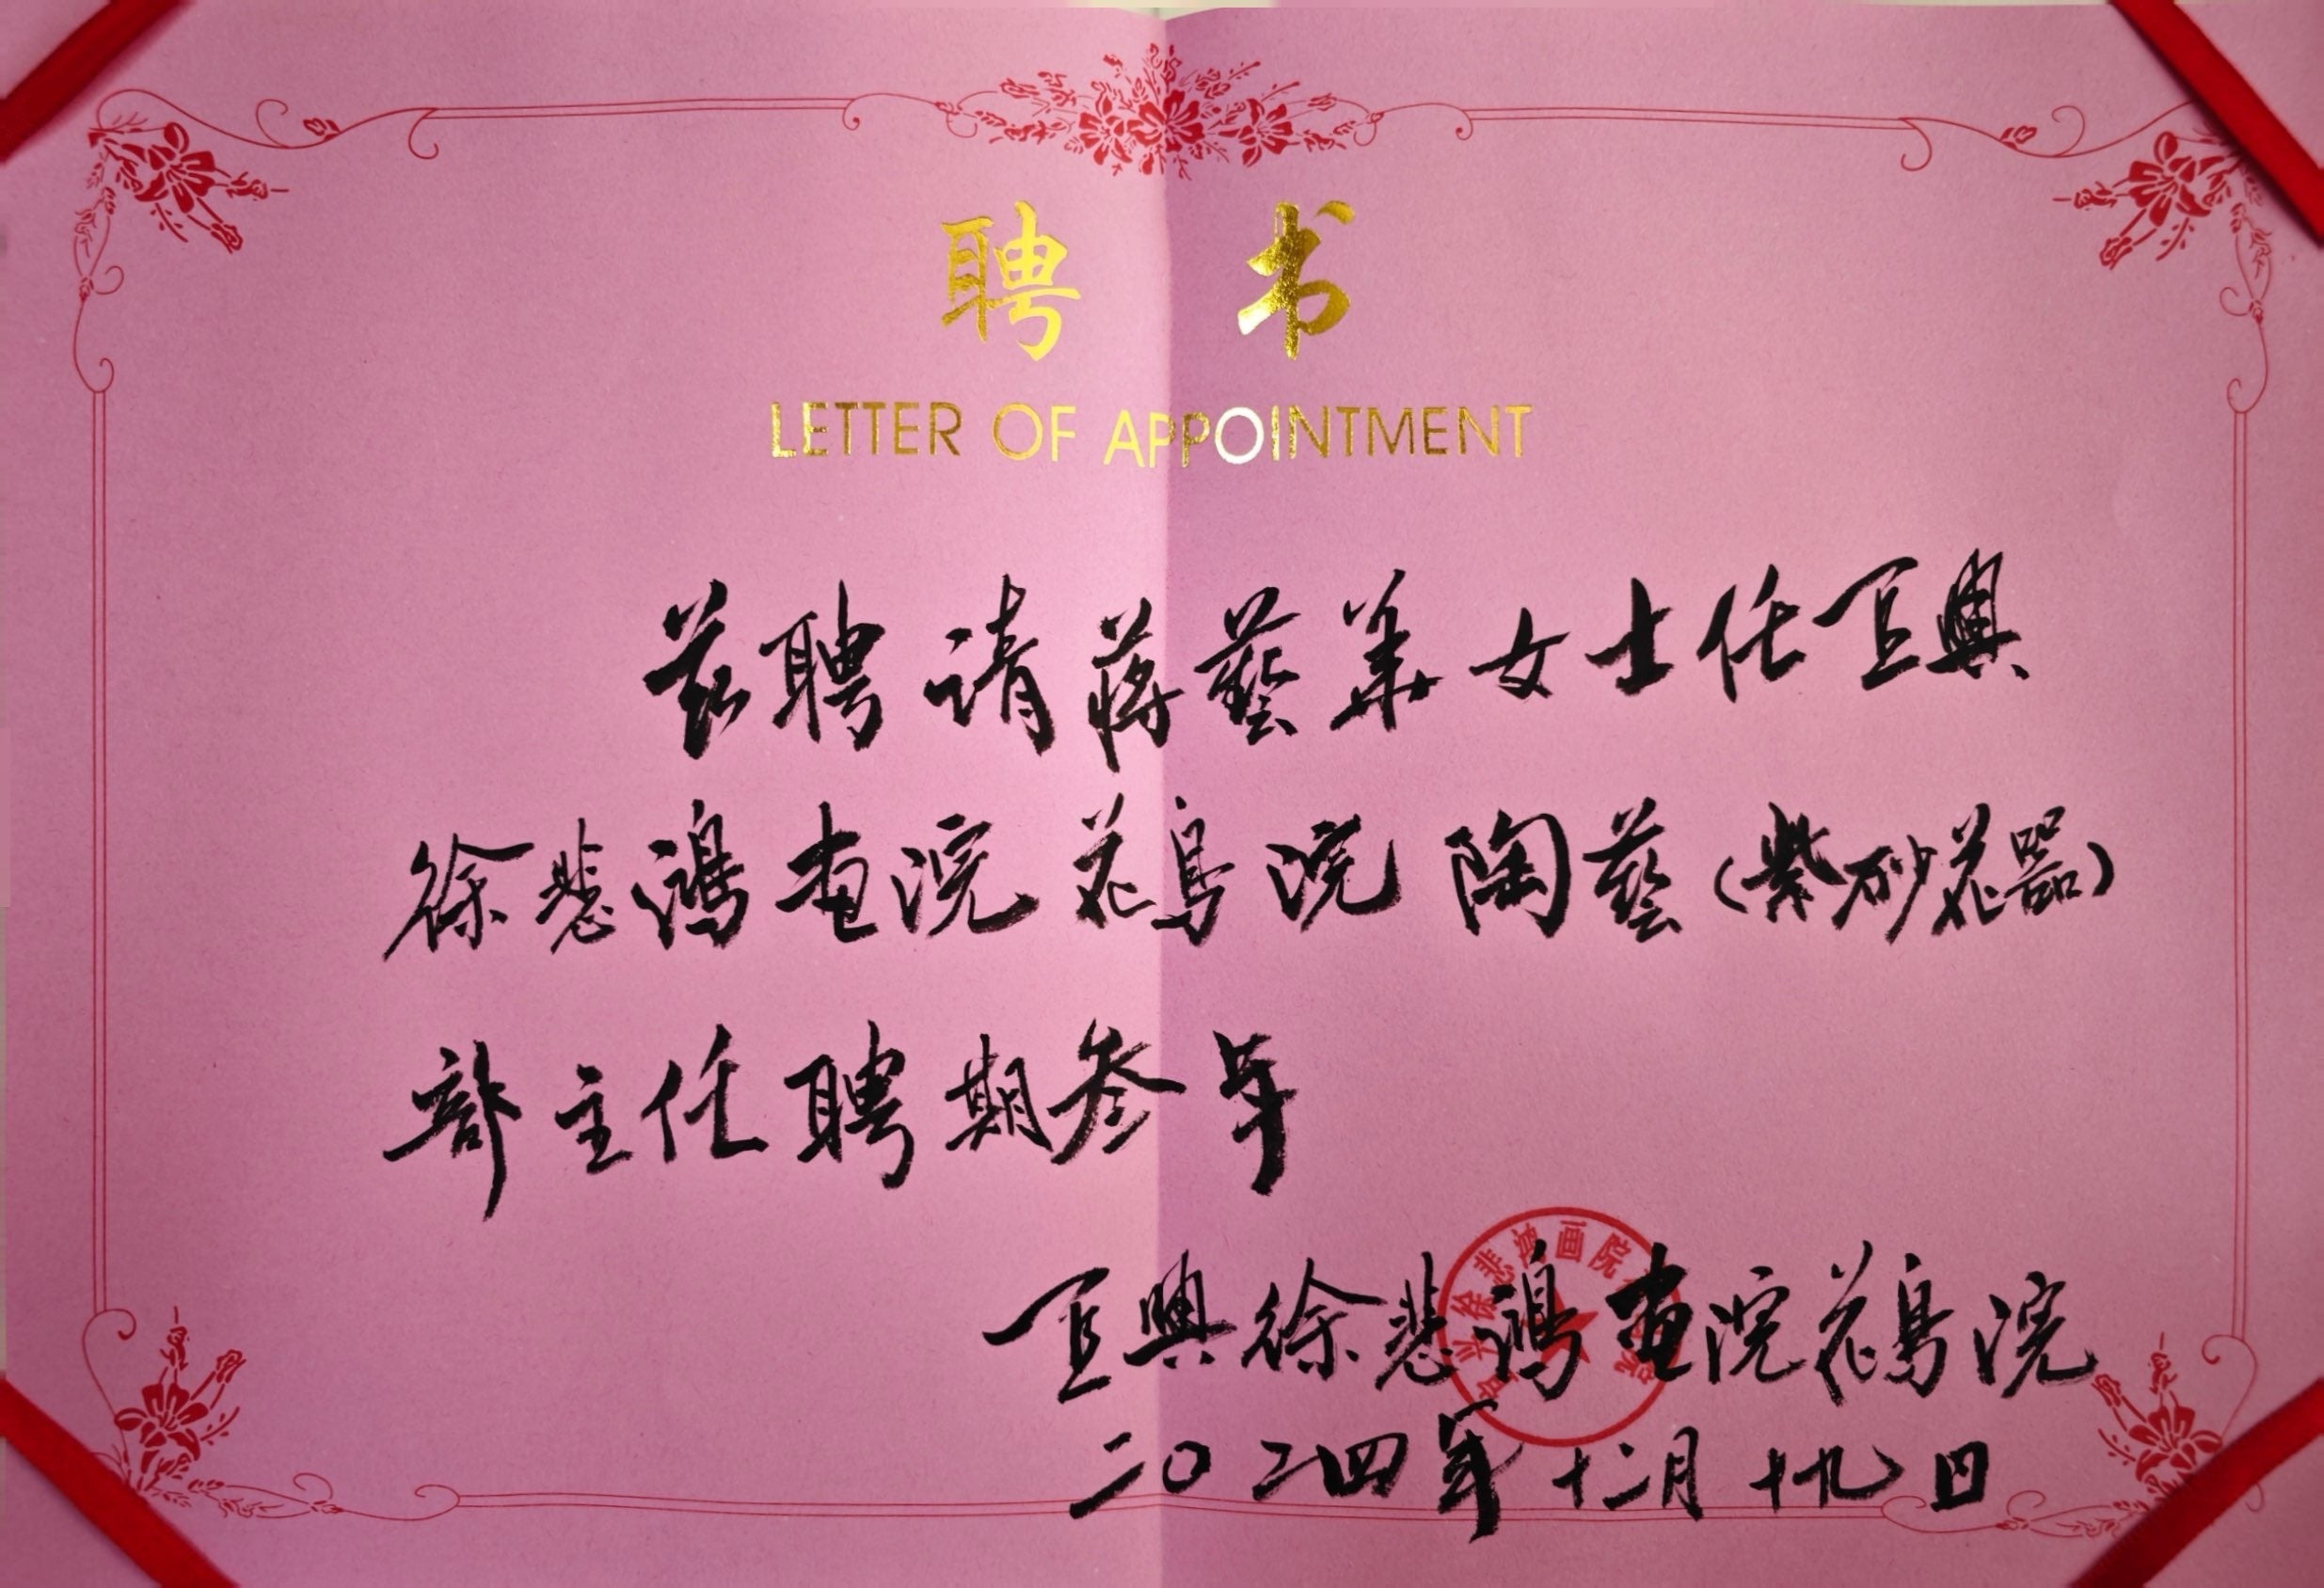 聘书
LETTER OF APPOINTMENT
兹聘请蒋藝華女士任宜興
徐悲鴻画院花鳥院陶藝(紫砂花器)
部主任聘期叁年
宜興徐悲鴻画院花鳥院
二〇二四年十二月十九日
徐悲鸿画院